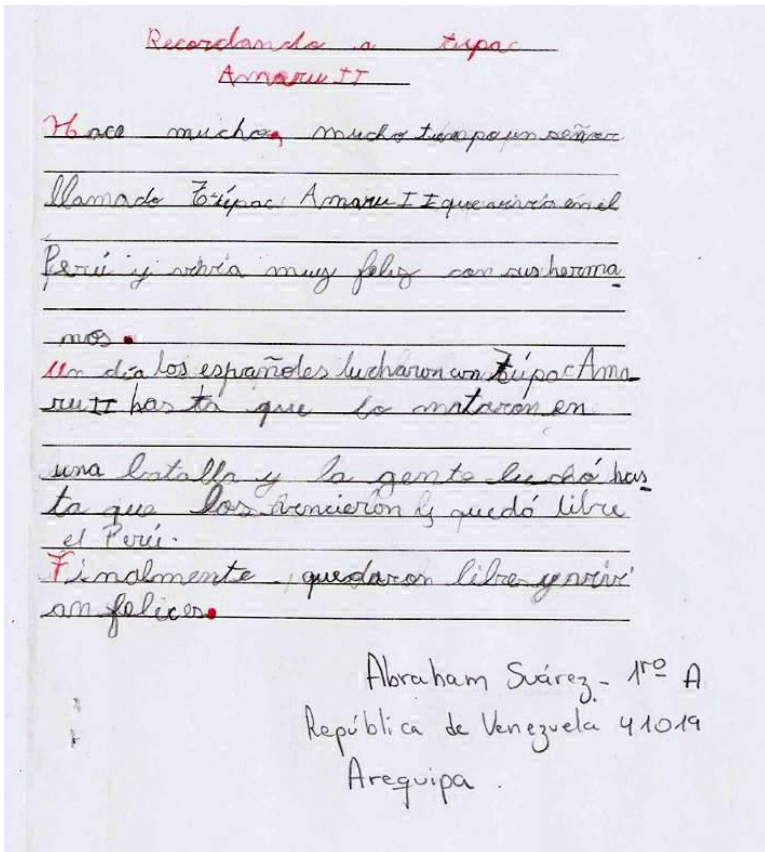 Recordando a túpac
Amaru II
Hace mucho, mucho tiempo un señor
llamado Túpac Amaru II que vivía en el
Perú y vivía muy feliz con sus herma_
nos.
Un día los españoles lucharon con Túpac Ama_
ru II has ta que lo mataron en
una batalla y la gente luchó has_
ta que los vencieron y quedó libre
el Perú.
Finalmente, quedaron libres y viví
an felices.
Abraham Suárez - 1ro A
República de Venezuela 41019
Arequipa.